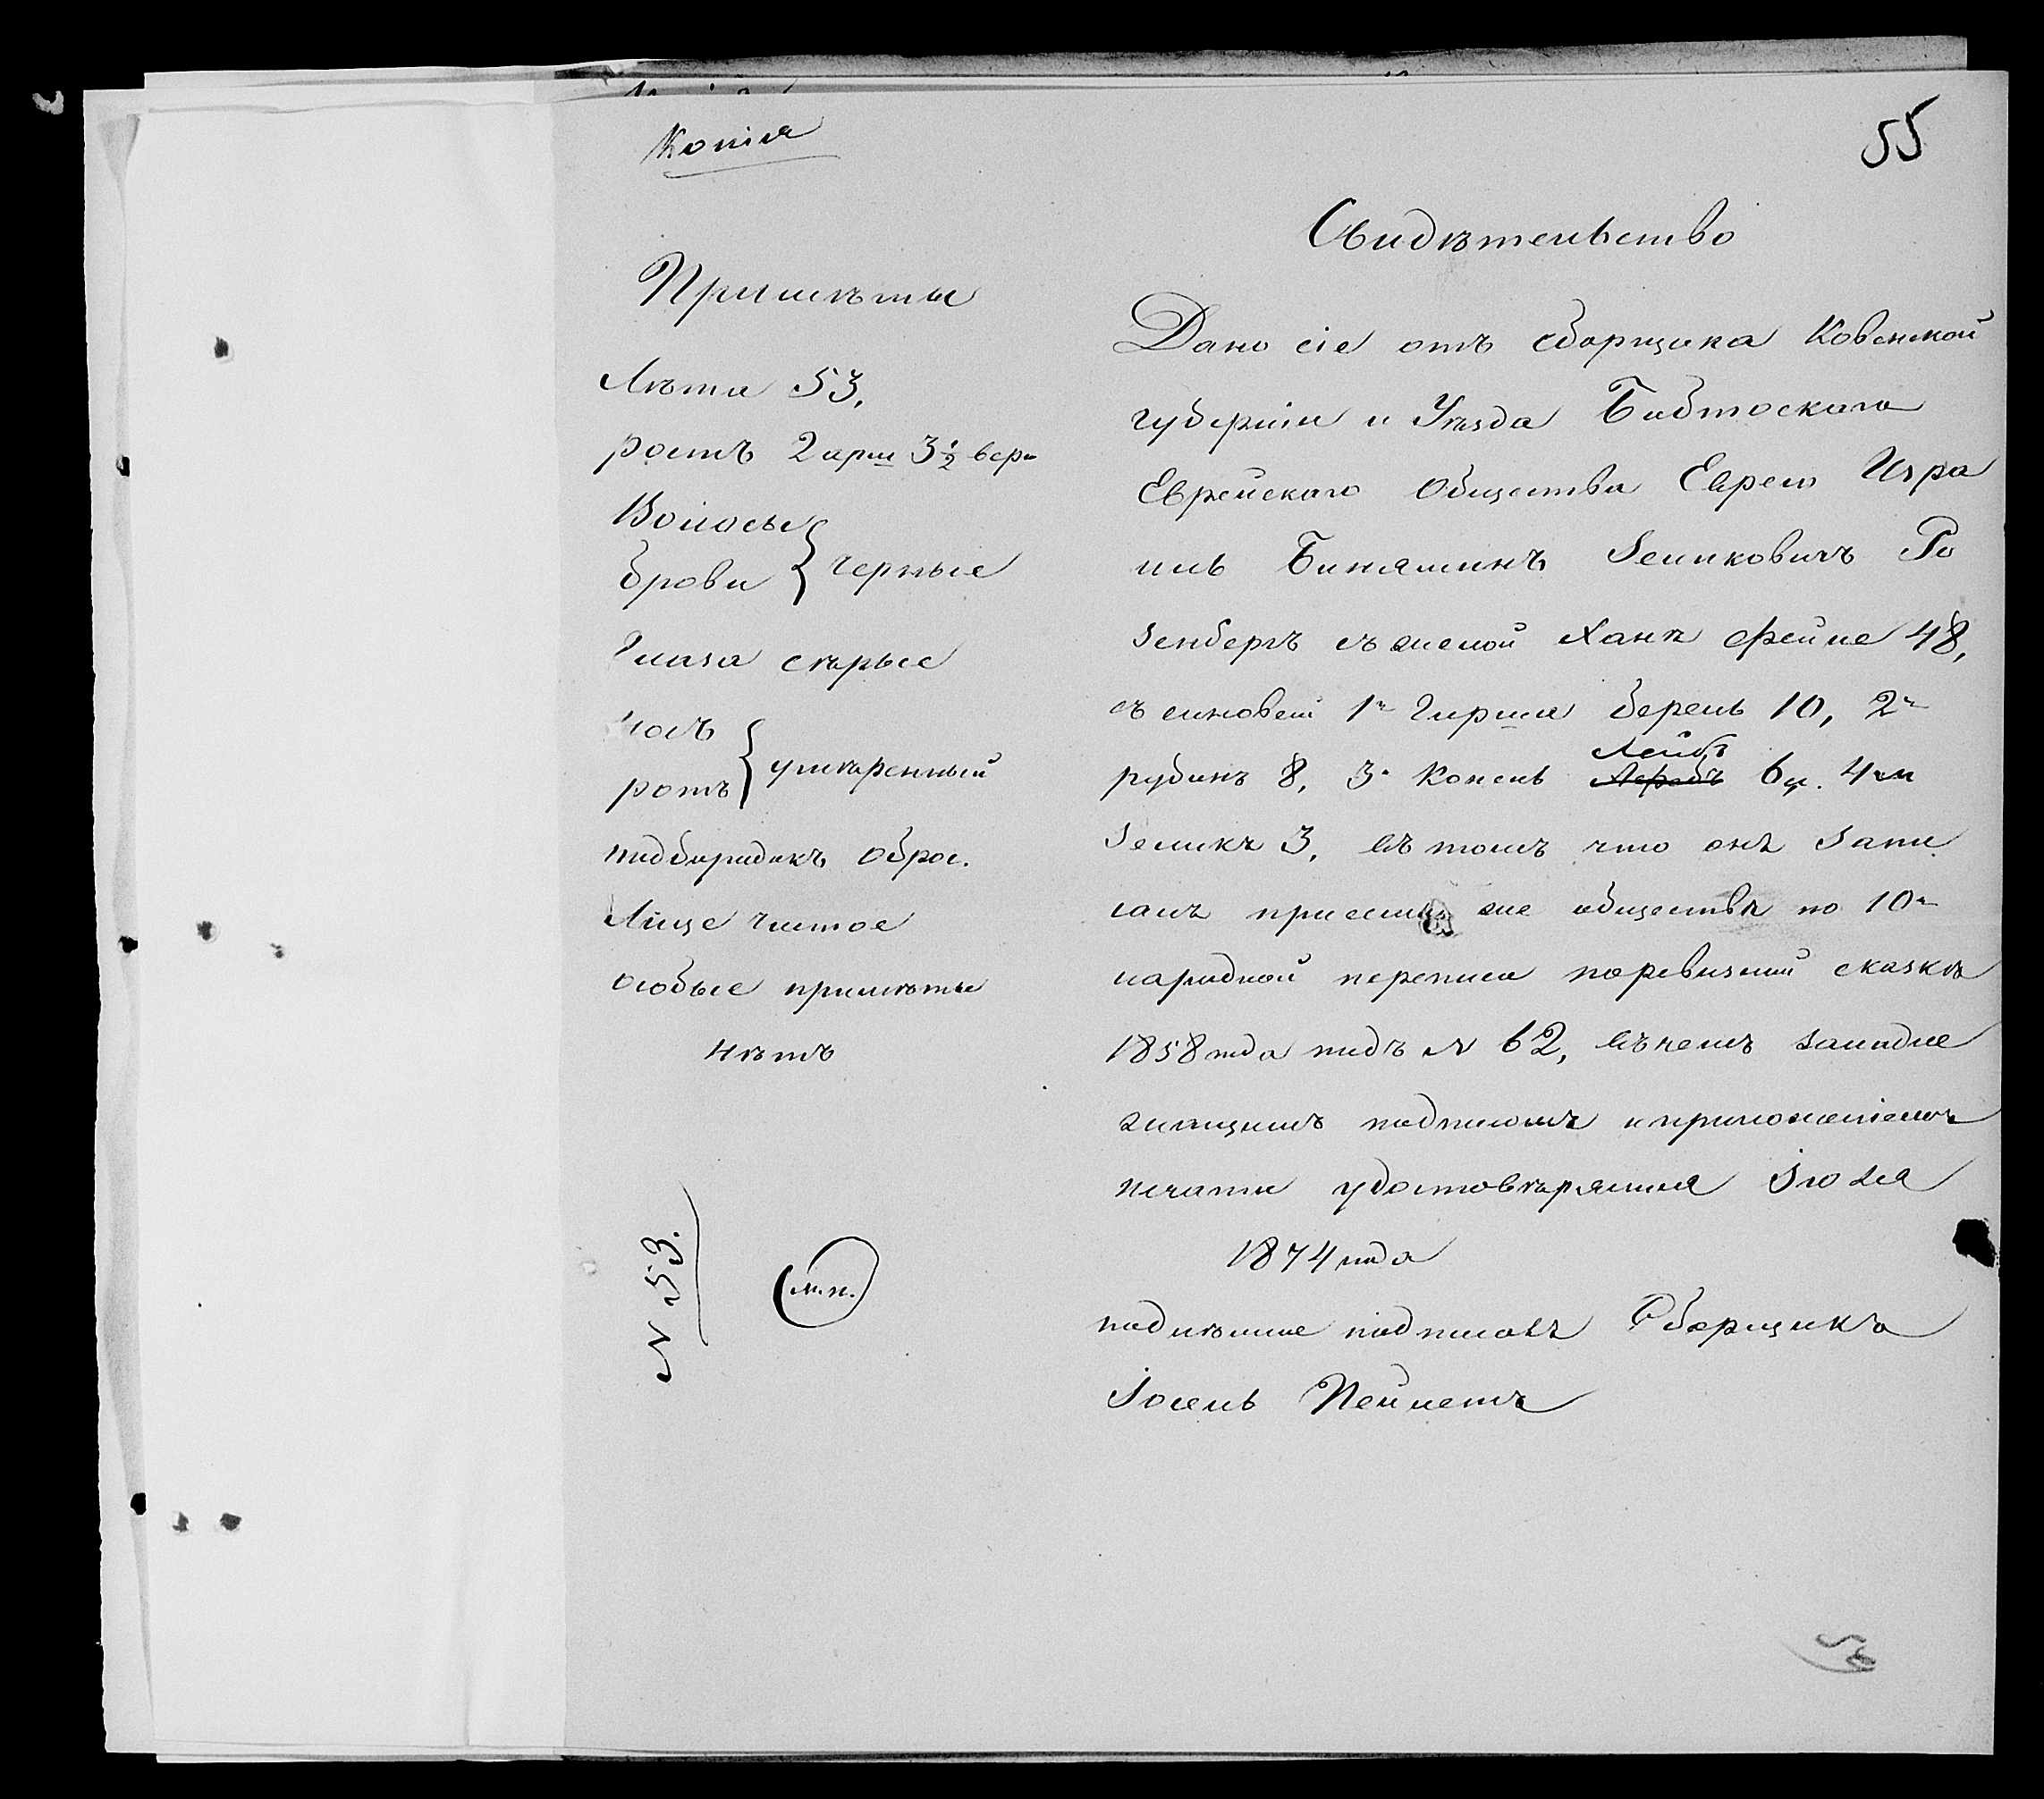 Копія
55
Примѣты
Лѣта 53,
ростъ 2 арш 3½ вер
Волосы
брови } черные
Глаза сѣрые
носъ
ротъ } умѣренный
подбородокъ оброс.
Лице чистое
особые примѣты
нѣтъ
N 53.
(м.п.)
Свидѣтельство
Дано сіе отъ сборщика Ковенской
губерніи и Уѣзда Бабтоскаго
Еврейскаго Общества Еврею Изра
иль Биняминъ Зеликовичъ Ро
зенбергъ съ женой Ханѣ Фейге 48,
съ сыновей 1й Гирша Берель 10, 2й
рубинъ 8, 3й Копель Лейбъ 6ц. 4ый
Зеликъ 3, въ томъ что онъ запи
санъ при семъ же обществѣ по 10й
народной переписи поревизкий сказкѣ
1858 года подъ N 62, въ чемъ занадле
жащимъ подписомъ и приложеніемъ
печати удостовѣряется Іюля
1874 года
подлѣнное подписалъ Сборщикъ
Іосель